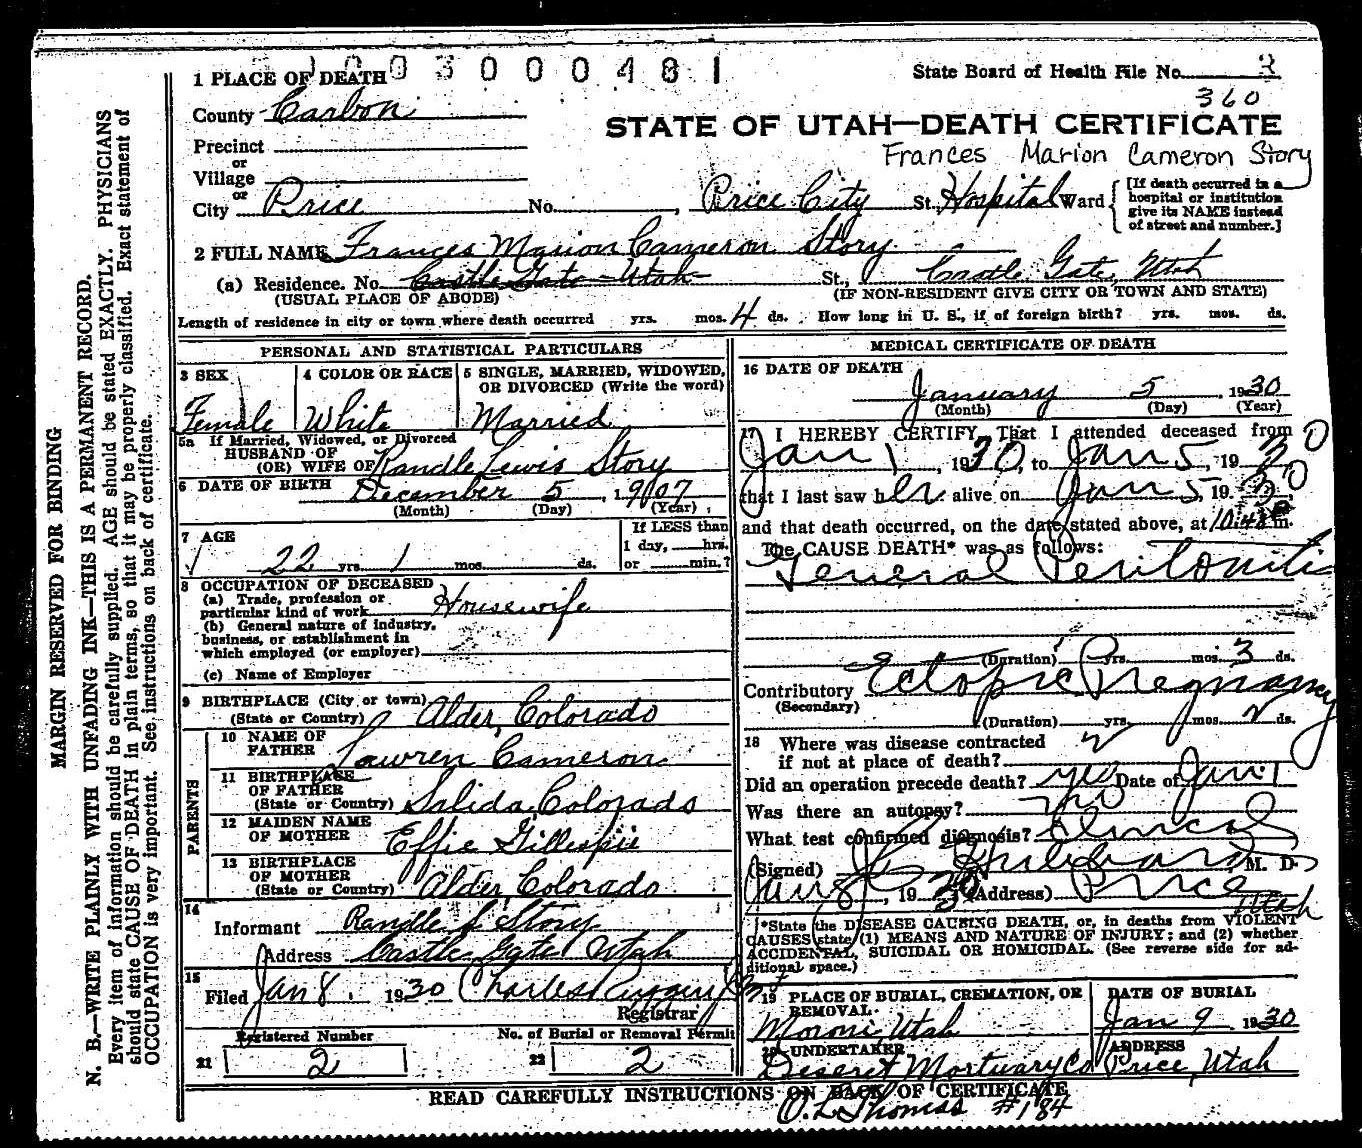 1 PLACE OF DEATH 1 0 0 3 0 0 0 4 8 1 State Board of Health File No. 3
360
County Carbon
STATE OF UTAH—DEATH CERTIFICATE
Precinct
Frances Marion Cameron Story
or
Village
or
City Price No. , Price City St. Hospital Ward
[If death occurred in a
hospital or institution
give its NAME instead
of street and number.]
2 FULL NAME Frances Marion Cameron Story
(a) Residence. No. Castle Gate - Utah St., Castle Gate, Utah
(USUAL PLACE OF ABODE) (IF NON-RESIDENT GIVE CITY OR TOWN AND STATE)
Length of residence in city or town where death occurred yrs. mos. 4 ds. How long in U. S., if of foreign birth? yrs. mos. ds.
PERSONAL AND STATISTICAL PARTICULARS
3 SEX 4 COLOR OR RACE 5 SINGLE, MARRIED, WIDOWED,
OR DIVORCED (Write the word)
Female White Married
5a If Married, Widowed, or Divorced
HUSBAND OF
(OR) WIFE OF Randle Lewis Story
6 DATE OF BIRTH December 5, 1907
(Month) (Day) (Year)
7 AGE If LESS than
1 day, hrs.
22 yrs. 1 mos. ds. or min.?
8 OCCUPATION OF DECEASED
(a) Trade, profession or
particular kind of work Housewife
(b) General nature of industry,
business, or establishment in
which employed (or employer)
(c) Name of Employer
9 BIRTHPLACE (City or town)
(State or Country) Alder, Colorado
PARENTS
10 NAME OF
FATHER Lawren Cameron
11 BIRTHPLACE
OF FATHER
(State or Country) Salida, Colorado
12 MAIDEN NAME
OF MOTHER Effie Gillespie
13 BIRTHPLACE
OF MOTHER
(State or Country) Alder, Colorado
14
Informant Randle L Story
Address Castle Gate Utah
15
Filed Jan 8. 1930
Registrar
Registered Number No. of Burial or Removal Permit
21 2 22 2
MEDICAL CERTIFICATE OF DEATH
16 DATE OF DEATH
January 5, 1930
(Month) (Day) (Year)
17 I HEREBY CERTIFY, That I attended deceased from
Jan 1, 1930, to Jan 5, 1930
that I last saw her alive on Jan 5, 1930
and that death occurred, on the date stated above, at 10:48 P m.
The CAUSE DEATH* was as follows:
General Peritonitis
(Duration) yrs. mos. 3 ds.
Contributory Ectopic Pregnancy
(Secondary)
(Duration) yrs. mos. ds.
18 Where was disease contracted
if not at place of death?
Did an operation precede death? yes Date of Jan 1
Was there an autopsy? no
What test confirmed diagnosis? Clinical
(Signed) Hubbard, M. D.
Jan 8, 1930 (Address) Price
Utah
*State the DISEASE CAUSING DEATH, or, in deaths from VIOLENT
CAUSES state (1) MEANS AND NATURE OF INJURY; and (2) whether
ACCIDENTAL, SUICIDAL OR HOMICIDAL. (See reverse side for ad-
ditional space.)
19 PLACE OF BURIAL, CREMATION, OR
REMOVAL
Moroni, Utah
DATE OF BURIAL
Jan 9 1930
20 UNDERTAKER
Deseret Mortuary Co
ADDRESS
Price, Utah
READ CAREFULLY INSTRUCTIONS ON BACK OF CERTIFICATE
O. L. Thomas #184
MARGIN RESERVED FOR BINDING
N. B.—WRITE PLAINLY WITH UNFADING INK—THIS IS A PERMANENT RECORD.
Every item of information should be carefully supplied. AGE should be stated EXACTLY. PHYSICIANS
should state CAUSE OF DEATH in plain terms, so that it may be properly classified. Exact statement of
OCCUPATION is very important. See instructions on back of certificate.